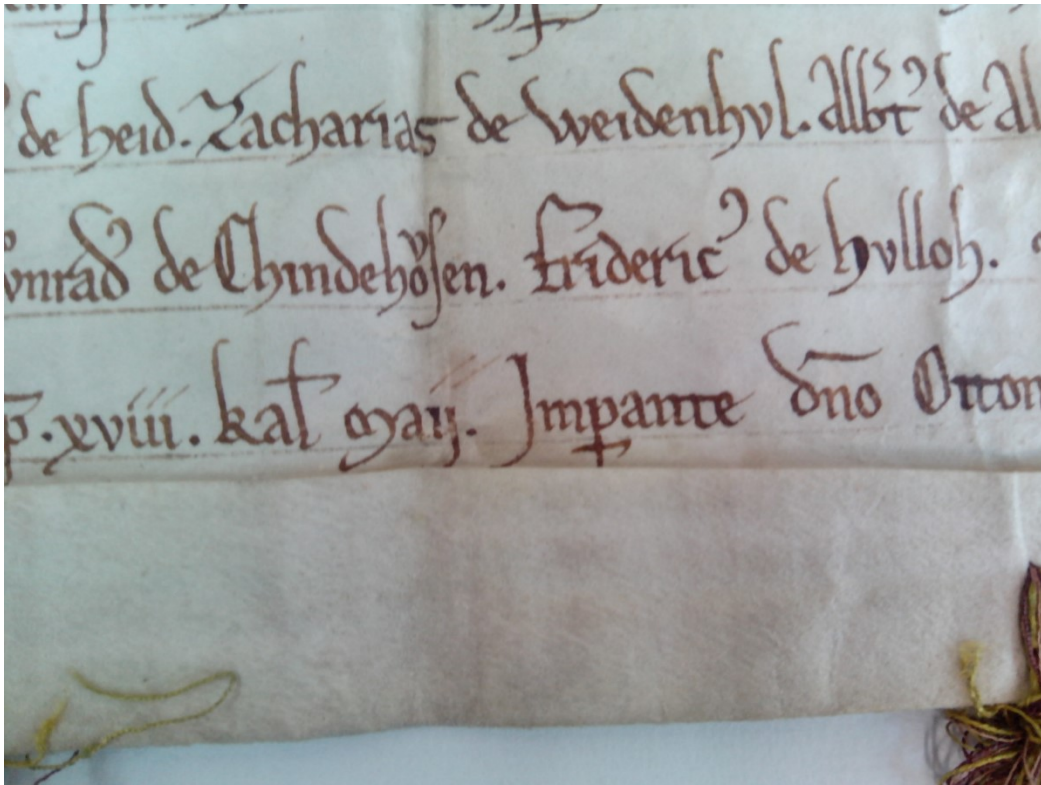 de heid. Zacharias de weidenhvl. Albt᾽ de Al
vnrad᾽ de Chindehoͮsen. Frideric᾽ de hvlloh.
p̄. xviii. kal maij. Imꝑante dn̄o Otton